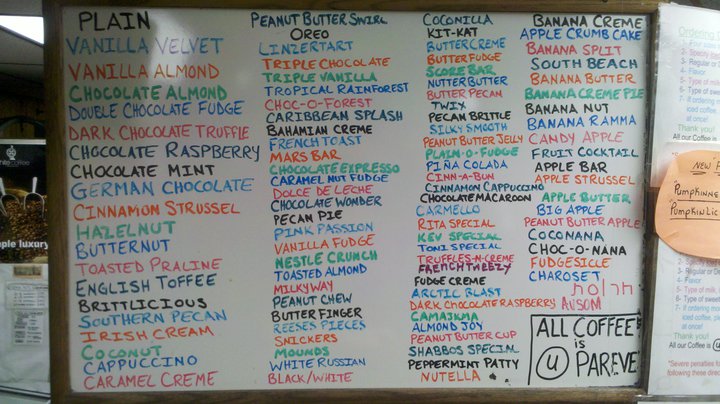 PLAIN
VANILLA VELVET
VANILLA ALMOND
CHOCOLATE ALMOND
DOUBLE CHOCOLATE FUDGE
DARK CHOCOLATE TRUFFLE
CHOCOLATE RASPBERRY
CHOCOLATE MINT
GERMAN CHOCOLATE
CINNAMON STRUSSEL
HAZELNUT
BUTTERNUT
TOASTED PRALINE
ENGLISH TOFFEE
BRITTLICIOUS
SOUTHERN PECAN
IRISH CREAM
COCONUT
CAPPUCCINO
CARAMEL CREME
PEANUT BUTTER SWIRL
OREO
LINZERTART
TRIPLE CHOCOLATE
TRIPLE VANILLA
TROPICAL RAINFOREST
CHOC-O-FOREST
CARIBBEAN SPLASH
BAHAMIAN CREME
FRENCH TOAST
MARS BAR
CHOCOLATE EXPRESSO
CARAMEL NUT FUDGE
DOLCE DE LECHE
CHOCOLATE WONDER
PECAN PIE
PINK PASSION
VANILLA FUDGE
NESTLE CRUNCH
TOASTED ALMOND
MILKYWAY
PEANUT CHEW
BUTTER FINGER
REESES PIECES
SNICKERS
MOUNDS
WHITE RUSSIAN
BLACK/WHITE
COCONILLA
KIT-KAT
BUTTER CREME
BUTTER FUDGE
SCORE BAR
NUTTER BUTTER
BUTTER PECAN
TWIX
PECAN BRITTLE
SILKY SMOOTH
PEANUT BUTTER JELLY
PLAIN-O-FUDGE
PIÑA COLADA
CINN-A-BUN
CINNAMON CAPPUCCINO
CHOCOLATE MACAROON
CARMELLO
RITA SPECIAL
KEV SPECIAL
TONI SPECIAL
TRUFFLES-N-CREME
FRENCH TWEEZY
FUDGE CREME
ARCTIC BLAST
DARK CHOCOLATE RASPBERRY
CAMAJKMA
ALMOND JOY
PEANUT BUTTER CUP
SHABBOS SPECIAL
PEPPERMINT PATTY
NUTELLA
BANANA CREME
APPLE CRUMB CAKE
BANANA SPLIT
SOUTH BEACH
BANANA BUTTER
BANANA CREME PIE
BANANA NUT
BANANA RAMMA
CANDY APPLE
FRUIT COCKTAIL
APPLE BAR
APPLE STRUSSEL
APPLE BUTTER
BIG APPLE
PEANUT BUTTER APPLE
COCONANA
CHOC-O-NANA
FUDGESICLE
CHAROSET חרוסת
AUSOM
ALL COFFEE
is
U PAREVE
Thank you!
All our Coffee is
NEW
PUMPKIN
Thank you!
All our Coffee is U
*Severe penalties
following these direc